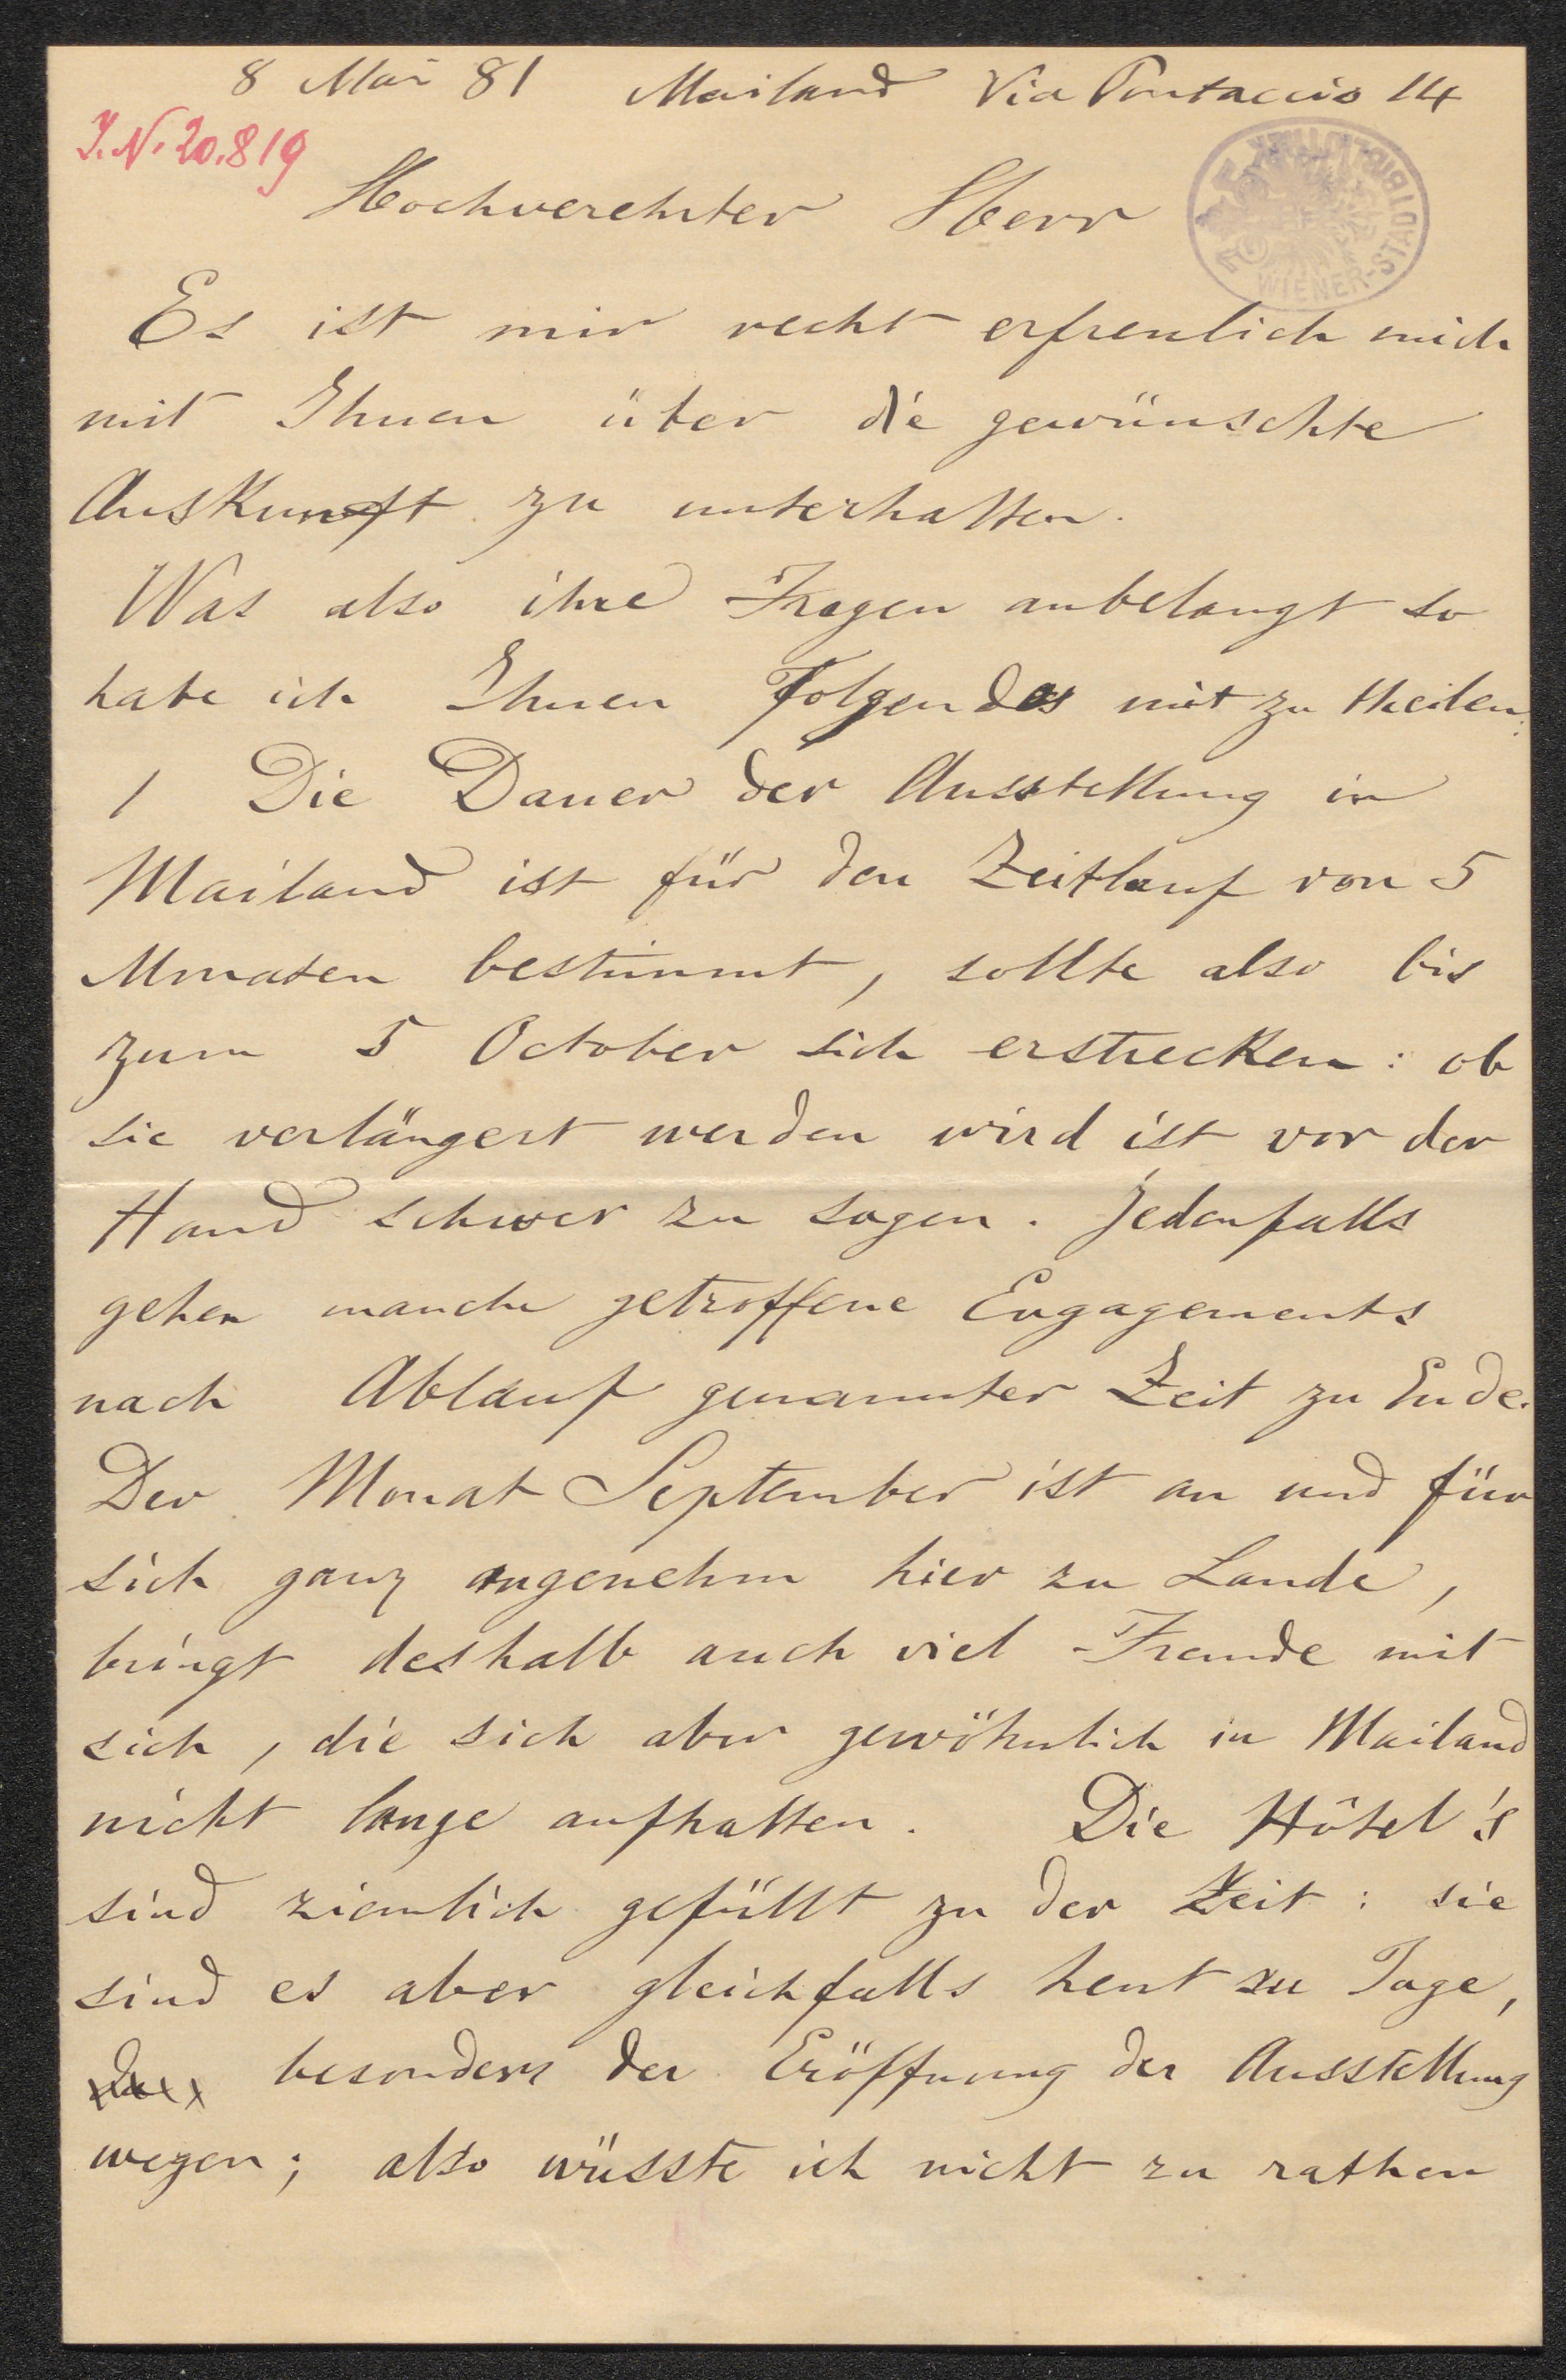 8 Mai 81 Mailand Via Pontaccio 14
J.N. 20.819
Hochverehrter Herr
WIENER-STADTBIBLIOTHEK
Es ist mir recht erfreulich mich
mit Ihnen über die gewünschte
Auskunft zu unterhalten.
Was also ihre Fragen anbelangt so
habe ich Ihnen Folgendes mit zu theilen:
1 Die Dauer der Ausstellung in
Mailand ist für den Zeitlauf von 5
Monaten bestimmt, sollte also bis
zum 5 October sich erstrecken: ob
sie verlängert werden wird ist vor der
Hand schwer zu sagen. Jedenfalls
gehen manche getroffene Engagements
nach Ablauf genannter Zeit zu Ende.
Der Monat September ist an und für
sich ganz angenehm hier zu Lande,
bringt deshalb auch viel Fremde mit
sich, die sich aber gewöhnlich in Mailand
nicht lange aufhalten. Die Hôtel's
sind ziemlich gefüllt zu der Zeit: sie
sind es aber gleichfalls heut zu Tage,
besonders der Eröffnung der Ausstellung
wegen; also wüsste ich nicht zu rathen